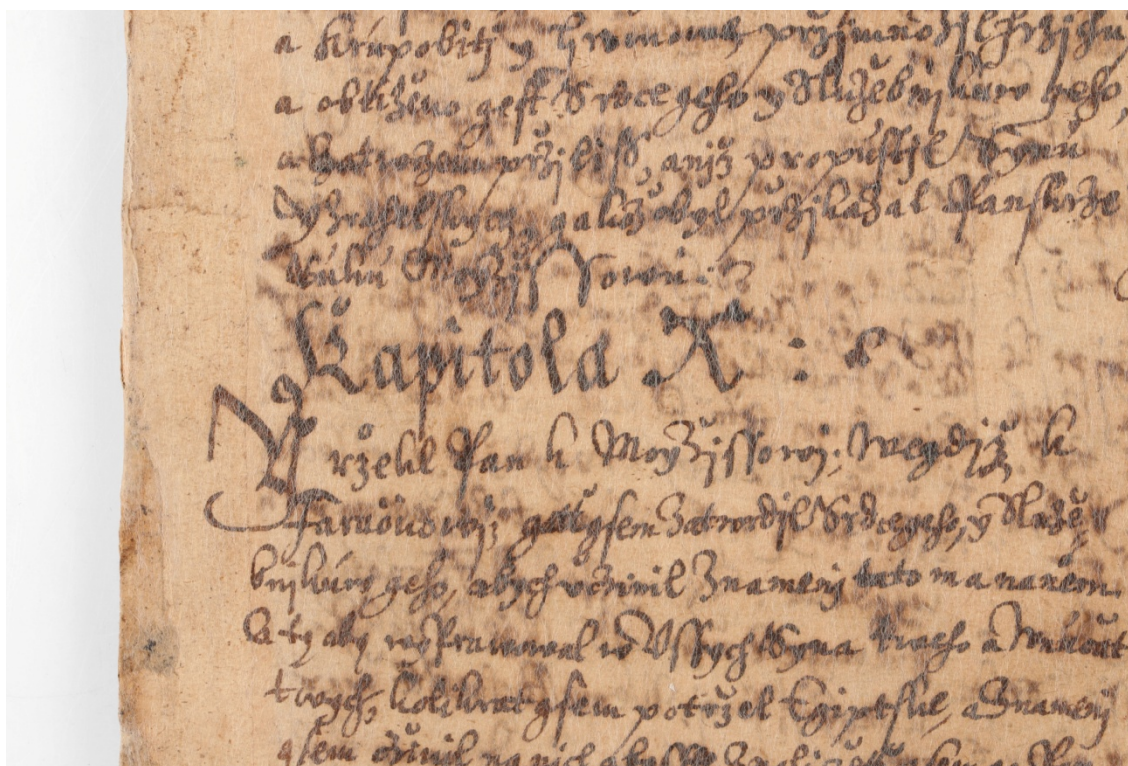 a krupobitj y hromowe přzimnožil hržichu
a obtiženo gest Srdce geho y Služebnijkůw geho,
a zatwrzen přzjliss, aniž propustil Synů
Yzrahelskych, yakož byl přzikázal Pan skrze
Ruků Moyžjssowu:
Kapitola X :
Y rzekl Pan k Moyžjssowj: wegdiž k
Faraonowj gat gsem zatwrdil Srdce geho, y Služe
bnijkůw geho, abych včinil Znamenj tato ma na něm.
A ty aby wyprawowal w Vssych Syna twého a Wnukůt
twych, kolikrat gsem potrzel Egiptske, a Znamenj
gsem činil na nich